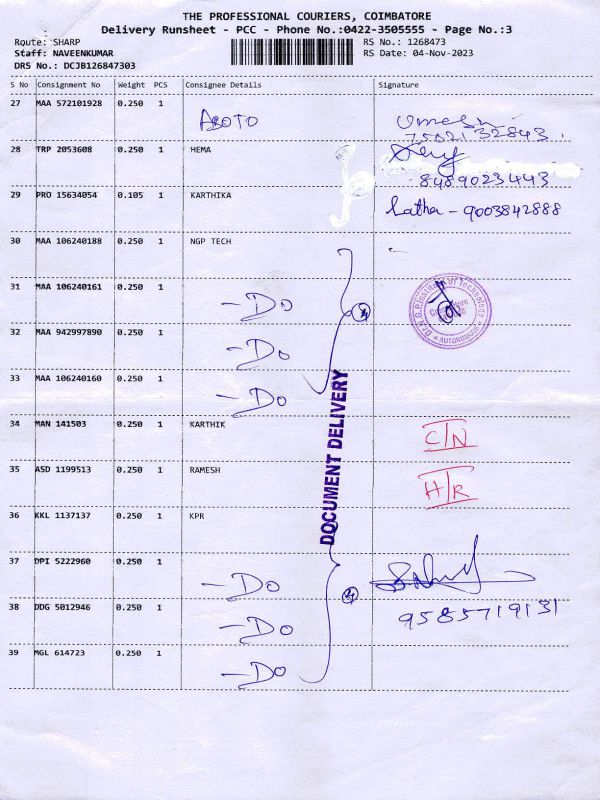 THE PROFESSIONAL COURIERS, COIMBATORE
Delivery Runsheet - PCC - Phone No.:0422-3505555 - Page No.:3
Route: SHARP RS No.: 1268473
Staff: NAVEENKUMAR RS Date: 04-Nov-2023
DRS No.: DCJB126847303
S No Consignment No Weight PCS Consignee Details Signature
27 MAA 572101928 0.250 1 ABOTO Umesh
7502132843
28 TRP 2053608 0.250 1 HEMA
8489023443
29 PRO 15634054 0.105 1 KARTHIKA Latha - 9003842888
30 MAA 106240188 0.250 1 NGP TECH
31 MAA 106240161 0.250 1 - Do 4
Dr. N.G.P. Institute of Technology
Coimbatore
* AUTONOMOUS *
32 MAA 942997890 0.250 1 - Do
33 MAA 106240160 0.250 1 - Do
DOCUMENT DELIVERY
34 MAN 141503 0.250 1 KARTHIK C/N
35 ASD 1199513 0.250 1 RAMESH H/R
36 KKL 1137137 0.250 1 KPR
37 DPI 5222960 0.250 1 - Do 4
38 DDG 5012946 0.250 1 - Do 9585719131
39 MGL 614723 0.250 1 - Do